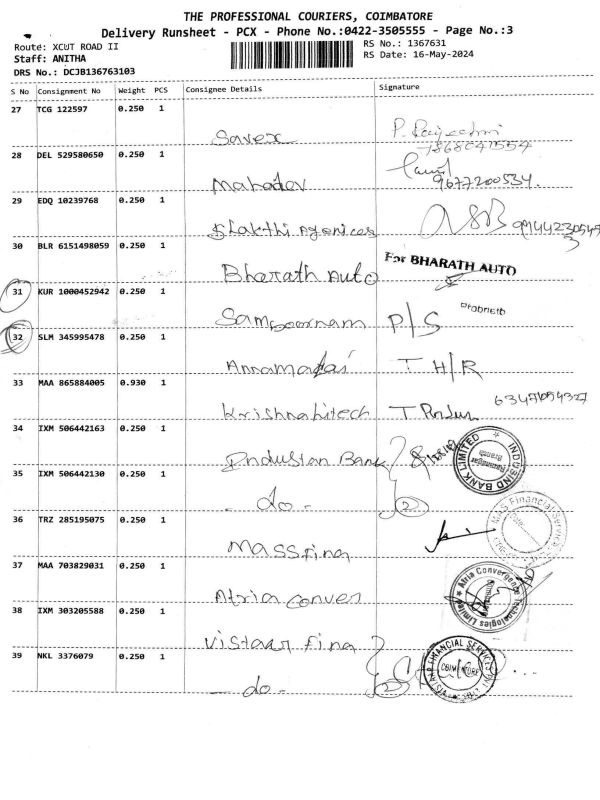 THE PROFESSIONAL COURIERS, COIMBATORE
Delivery Runsheet - PCX - Phone No.:0422-3505555 - Page No.:3
Route: XCUT ROAD II
RS No.: 1367631
Staff: ANITHA
RS Date: 16-May-2024
DRS No.: DCJB136763103
S No Consignment No Weight PCS Consignee Details Signature
27 TCG 122597 0.250 1
Savex
28 DEL 529580650 0.250 1
Mahadev 9677200534.
29 EDQ 10239768 0.250 1
Shakthi Agenices
30 BLR 6151498059 0.250 1
Bharath Auto For BHARATH AUTO
31 KUR 1000452942 0.250 1
Sampoornam P/S
32 SLM 345995478 0.250 1
Annamalai T H/R
33 MAA 865884005 0.930 1
Krishnahitech
34 IXM 506442163 0.250 1
Indusian Bank
INDUSIND BANK LIMITED
Branch
35 IXM 506442130 0.250 1
- do - 2
36 TRZ 285195075 0.250 1
Massfina
MAS Financial Services
37 MAA 703829031 0.250 1
Atria Conves
Atria Convergence Technologies Limited
38 IXM 303205588 0.250 1
Vistaar Fina
VISTAAR FINANCIAL SERVICES
COIMBATORE
39 NKL 3376079 0.250 1
- do - 2